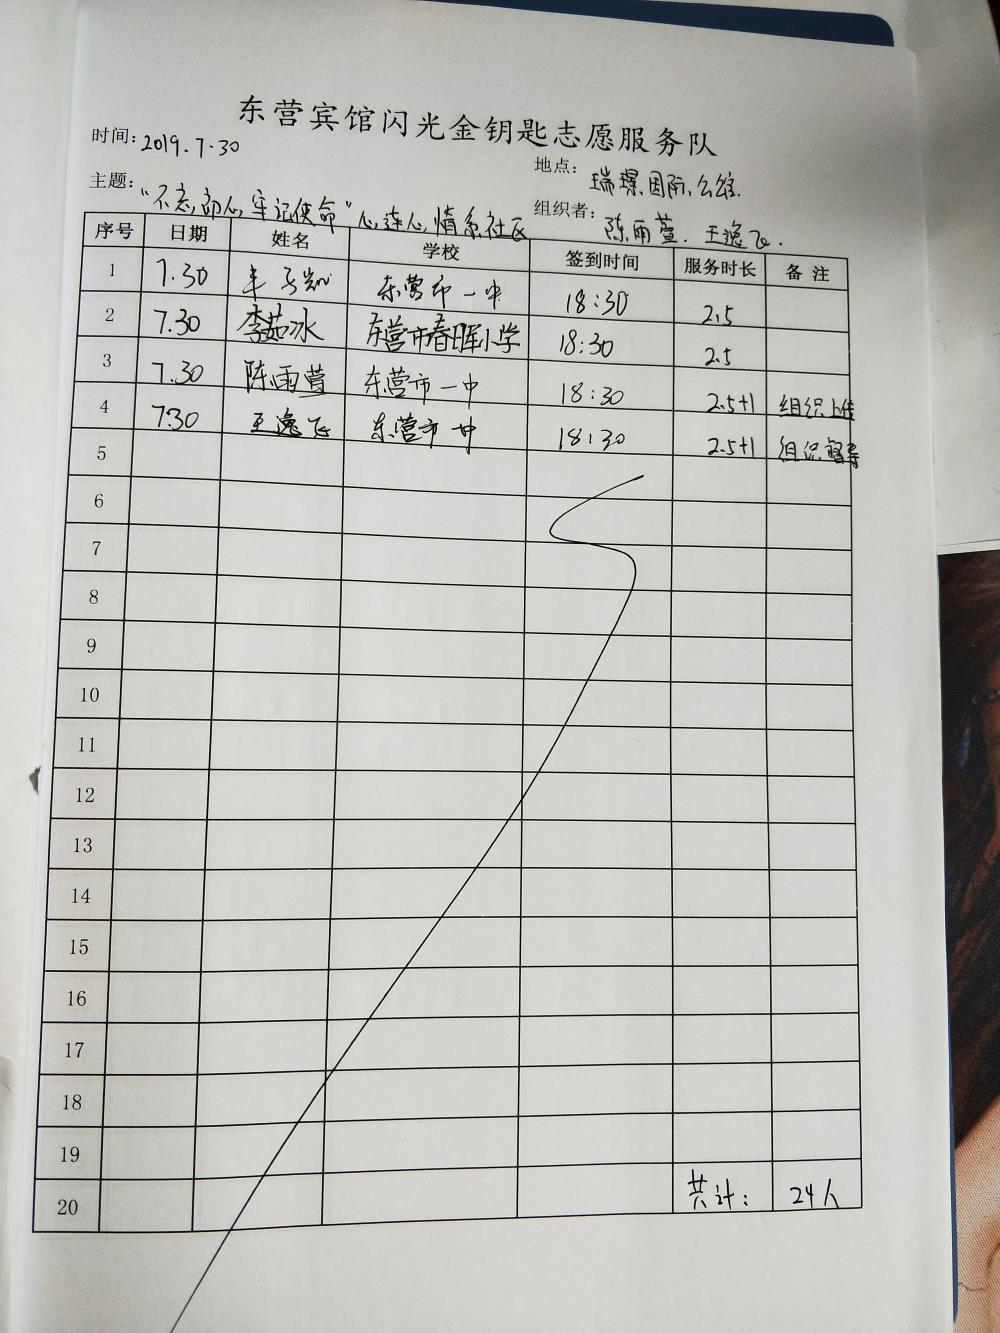 东营宾馆闪光金钥匙志愿服务队
时间: 2019.7.30 地点: 瑞璟国际公馆.
主题: "不忘初心,牢记使命"心连心,情系社区 组织者: 陈雨萱. 王逸飞.
序号 日期 姓名 学校 签到时间 服务时长 备注
1 7.30 东营市一中 18:30 2.5
2 7.30 李茹冰 东营市春晖小学 18:30 2.5
3 7.30 陈雨萱 东营市一中 18:30 2.5+1 组织上传
4 7.30 王逸飞 东营市一中 18:30 2.5+1 组织督导
5
6
7
8
9
10
11
12
13
14
15
16
17
18
19
20 共计: 24人